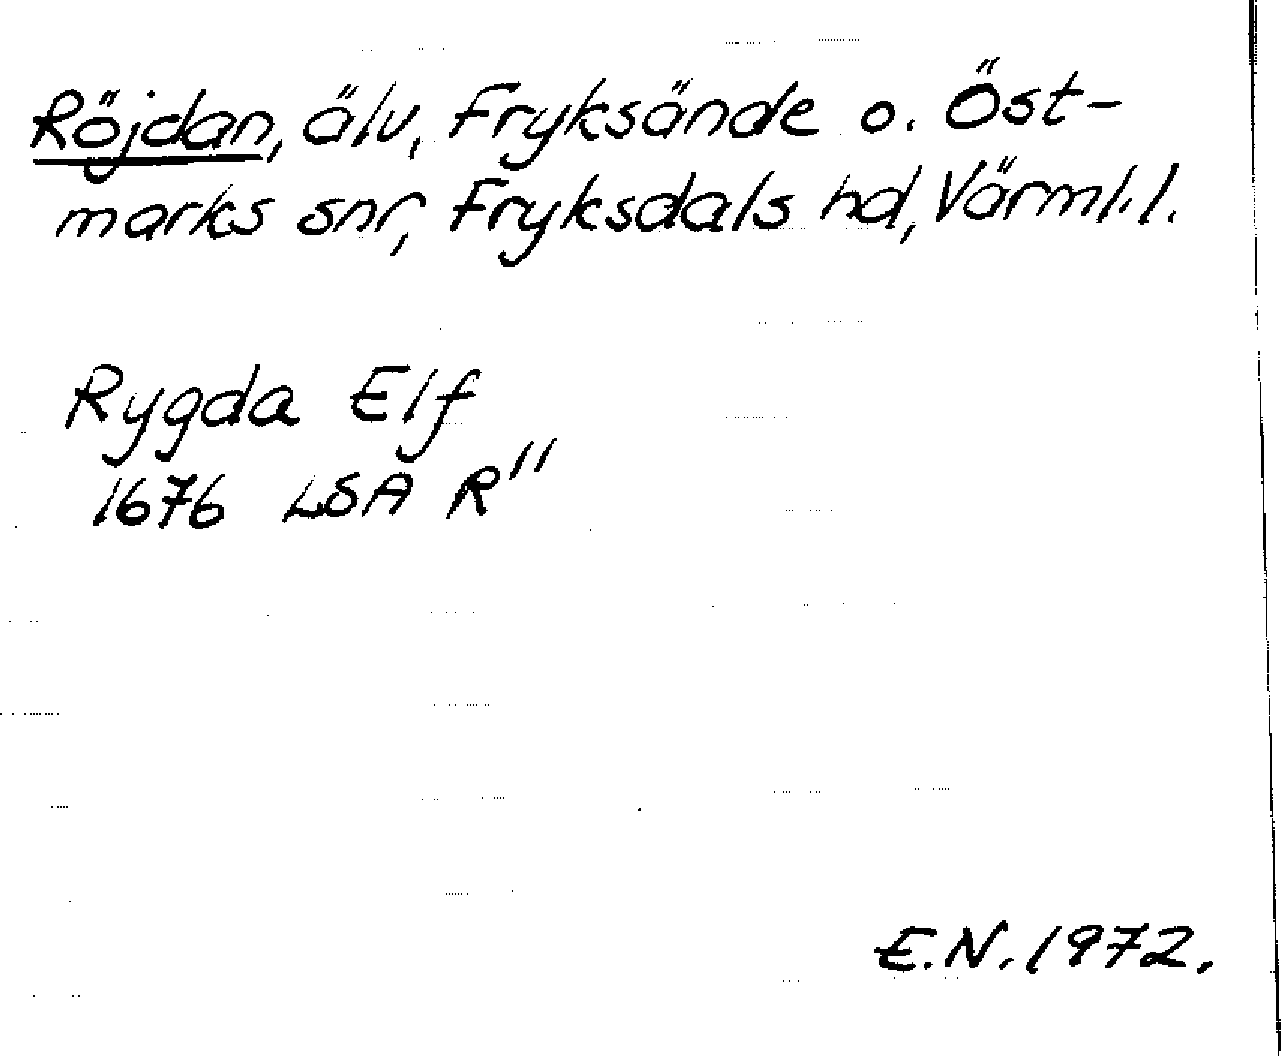 Röjdan, älv, Fryksände o. Öst-
marks snr, Fryksdals hd, Värml. l.
Rygda Elf
1676 LSA R"
E.N. 1972.